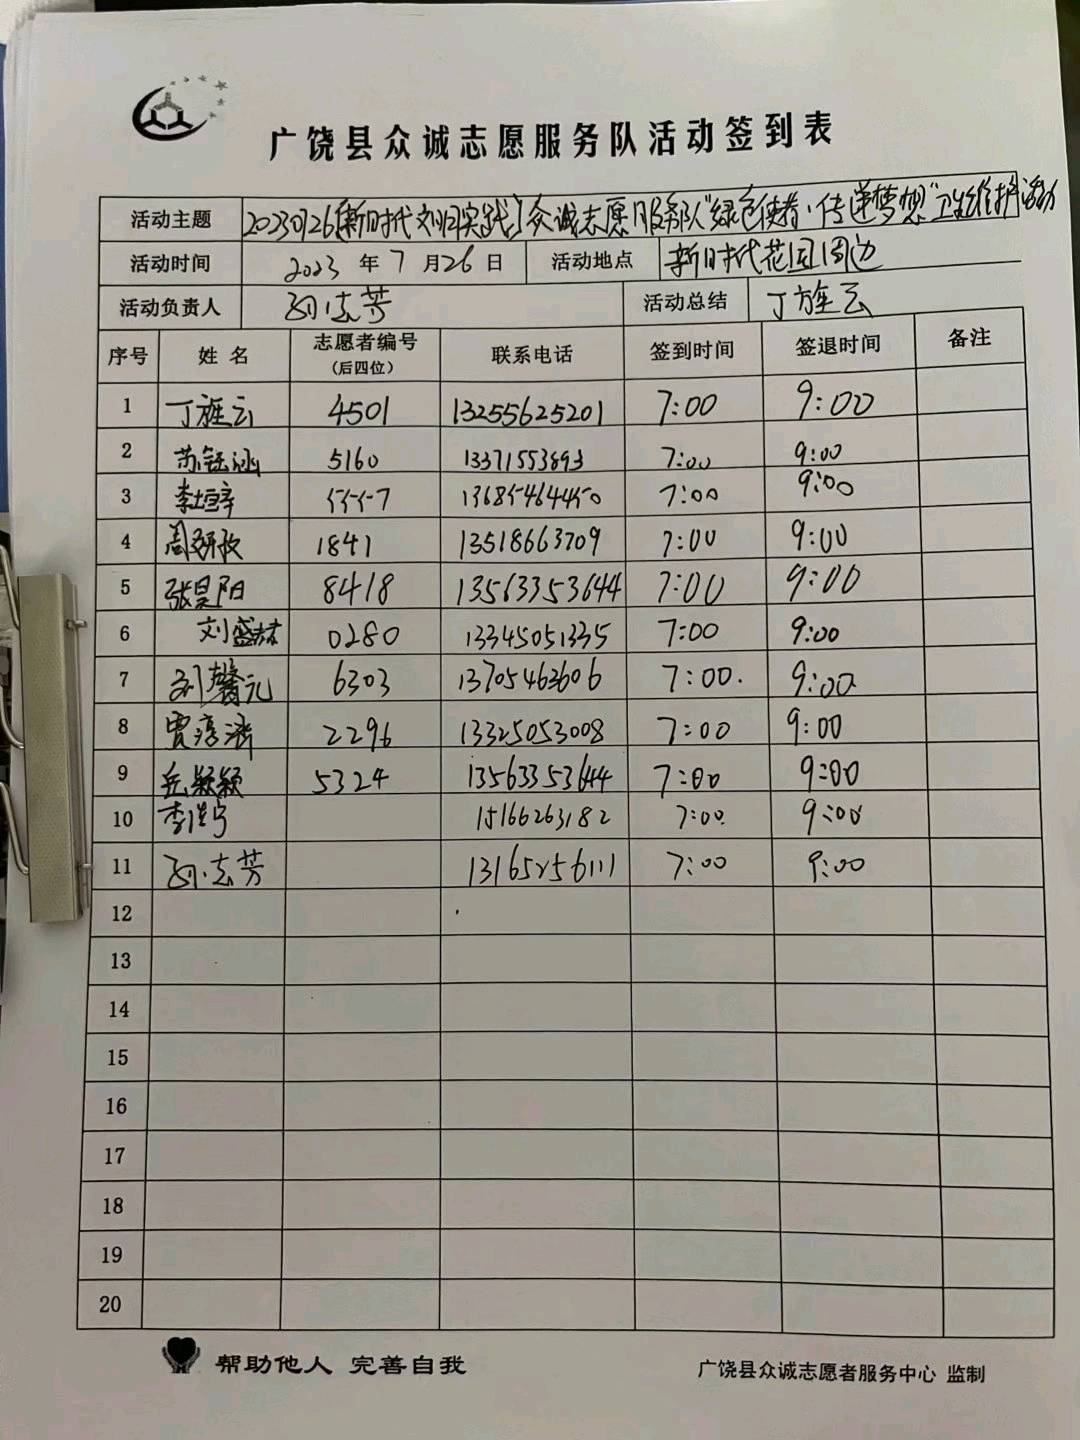 广饶县众诚志愿服务队活动签到表
活动主题 20230726[新时代文明实践]众诚志愿服务队"绿色使者·传递梦想"卫生维护活动
活动时间 2023 年 7 月 26 日 活动地点 新时代花园周边
活动负责人 孙志芳 活动总结 丁旌云
序号 姓 名 志愿者编号（后四位） 联系电话 签到时间 签退时间 备注
1 丁旌云 4501 13255625201 7:00 9:00
2 苏钰涵 5160 13371553893 7:00 9:00
3 李垣宇 5557 13685464450 7:00 9:00
4 周妍孜 1841 13518663709 7:00 9:00
5 张昊阳 8418 13563353644 7:00 9:00
6 刘盛林 0280 13345051335 7:00 9:00
7 刘馨元 6303 13705463606 7:00. 9:00
8 贾淳涵 2296 13325053008 7:00 9:00
9 岳颖颖 5324 13563353644 7:00 9:00
10 李 15166263182 7:00 9:00
11 孙志芳 13165256111 7:00 9:00
12
13
14
15
16
17
18
19
20
帮助他人 完善自我 广饶县众诚志愿者服务中心 监制